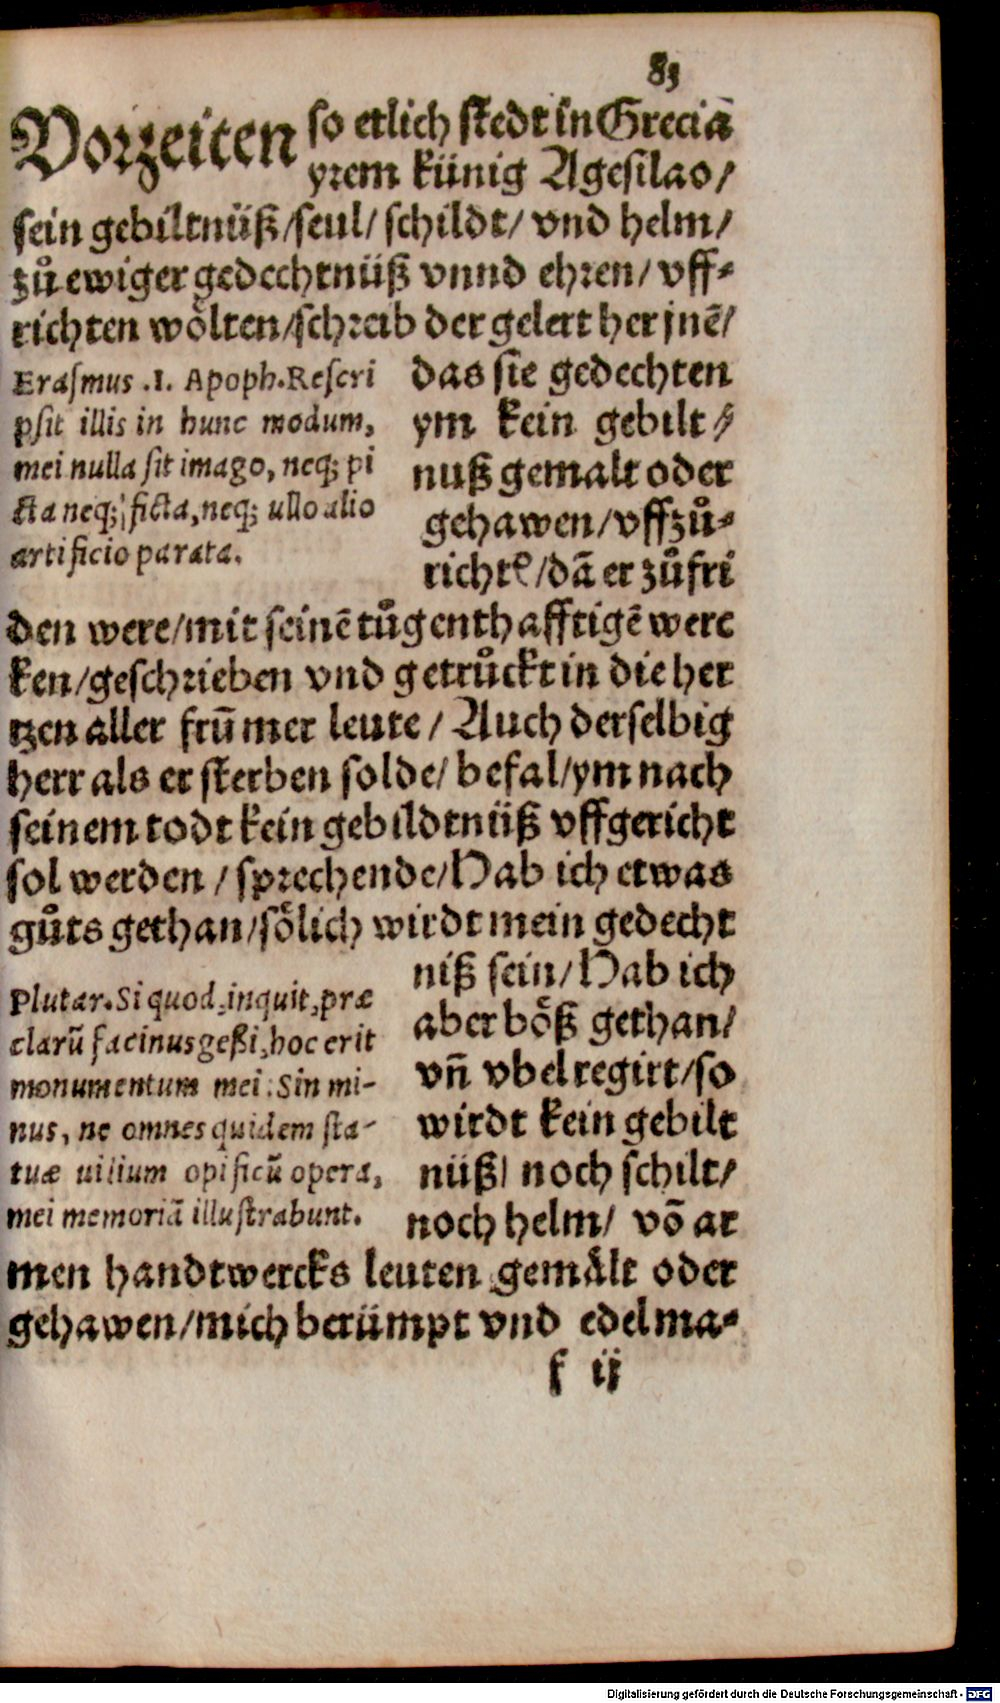 83
Vorzeiten so etlich stedt in Greciā
yrem künig Agesilao/
sein gebiltnüß/seul/ schildt/ vnd helm/
zů ewiger gedechtnüß vnnd ehren/ vff⸗
richten wölten/schreib der gelert her jnē/
das sie gedechten
ym kein gebilt⸗
nuß gemalt oder
gehawen/vffzů⸗
richtē/dā er zůfri
Erasmus .I. Apoph. Rescri
psit illis in hunc modum,
mei nulla sit imago, neq; pi
cta neq; ficta, neq; ullo alio
artificio parata.
den were/mit seinē tůgenthafftigē werc
ken/geschrieben vnd getrůckt in die her
tzen aller frūmer leute / Auch derselbig
herr als er sterben solde/ befal/ym nach
seinem todt kein gebildtnüß vffgericht
sol werden / sprechende/Hab ich etwas
gůts gethan/sölich wirdt mein gedecht
niß sein/Hab ich
aber böß gethan/
vn̄ vbel regirt/so
wirdt kein gebilt
nüß/ noch schilt/
noch helm/ vō ar
Plutar. Si quod, inquit, præ
clarū facinus geßi, hoc erit
monumentum mei: Sin mi-
nus, ne omnes quidem sta-
tuæ uilium opificū opera,
mei memoriā illustrabunt.
men handtwercks leuten gemålt oder
gehawen/mich berümpt vnd edel ma⸗
f ij
Digitalisierung gefördert durch die Deutsche Forschungsgemeinschaft - DFG